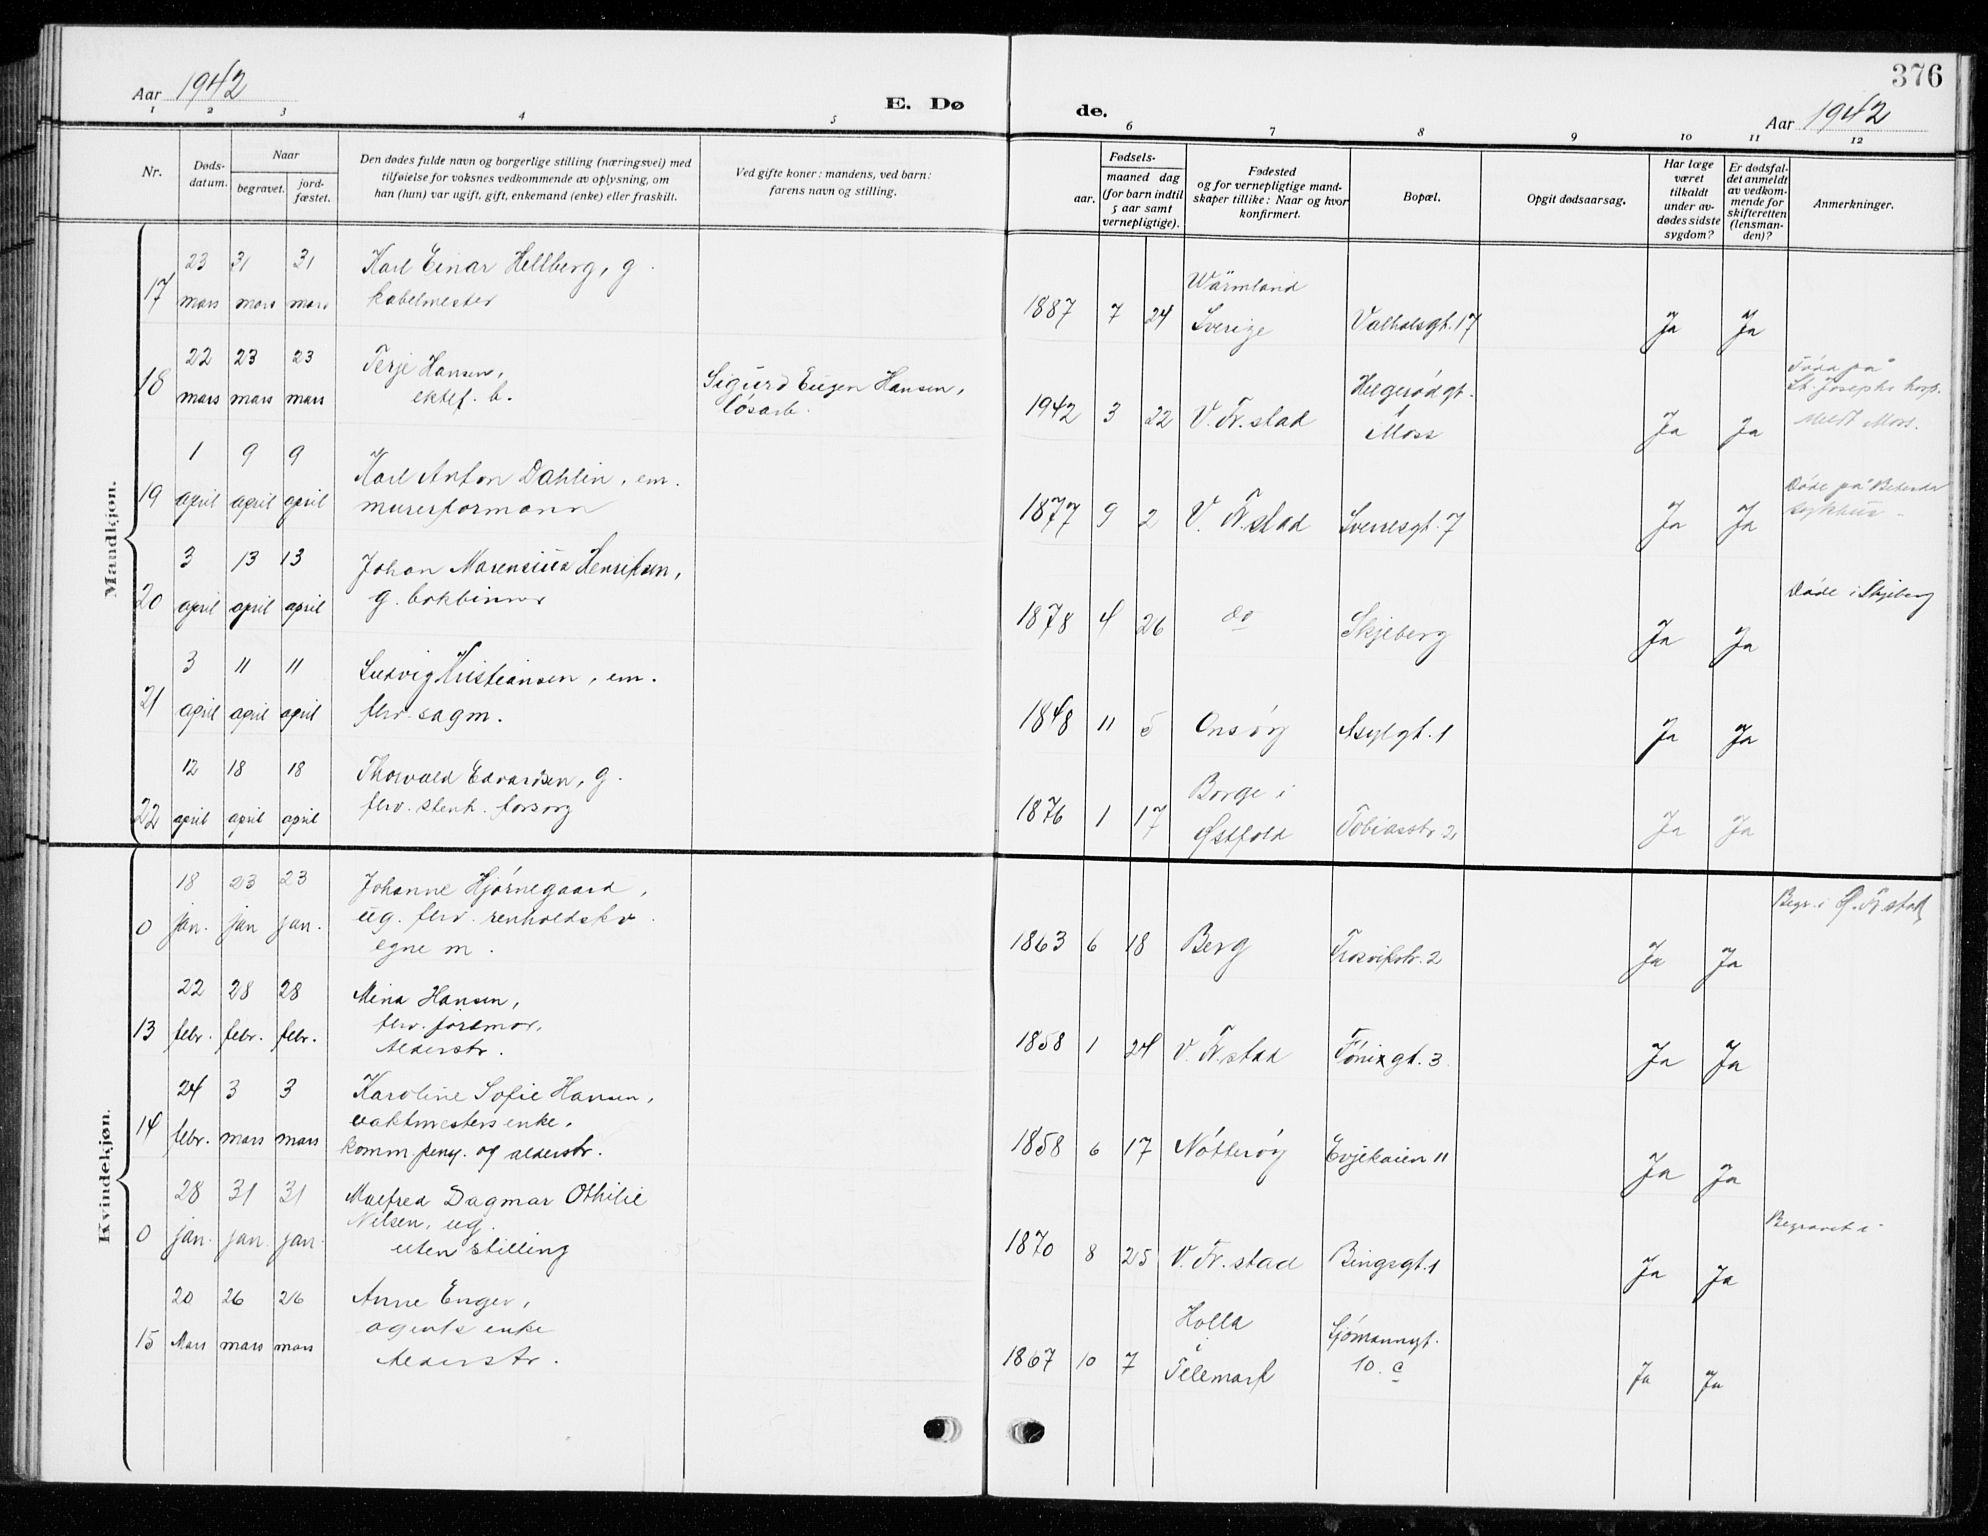 376
Aar 1942
E. Dø
de.
Aar 1942
1 2 3 4 5 6 7 8 9 10 11 12
Nr.
Døds-
datum.
Naar
begravet.
jord-
fæstet.
Den dødes fulde navn og borgerlige stilling (næringsvei) med
tilføielse for voksnes vedkommende av oplysning, om
han (hun) var ugift, gift, enkemand (enke) eller fraskilt.
Ved gifte koner: mandens, ved barn:
farens navn og stilling.
Fødsels-
aar.
maaned dag
(for barn indtil
5 aar samt
vernepligtige).
Fødested
og for vernepligtige mand-
skaper tillike: Naar og hvor
konfirmert.
Bopæl.
Opgit dødsaarsag.
Har læge
været
tilkaldt
under av-
dødes sidste
sygdom?
Er dødsfal-
det anmeldt
av vedkom-
mende for
skifteretten
(lensman-
den)?
Anmerkninger.
Mandkjøn.
17
23 31 31
mars mars mars
Karl Einar Hellberg, g.
kabelmester
1887 7 24
Wärmland
Sverige
Valhalsgt. 17
Ja Ja
18
22 23 23
mars mars mars
Terje Hansen,
ektef. b.
Sigurd Eugen Hansen,
løsarb.
1942 3 22
V. Fr.stad
Helgerødgt.
i Moss
Ja Ja
Føda på
St. Josephs hosp.
Meldt Moss.
19
1 9 9
april april april
Karl Anton Dahlin, em.
murerformann
1877 9 2
V. Fr.stad
Sverresgt. 7
Ja Ja
Døde på
sykehus
20
3 13 13
april april april
Johan Marensius Henriksen,
g. bokbinner
1878 4 26
do
Skjeberg
Ja Ja
Døde i Skjeberg
21
3 11 11
april april april
Ludvig Kristiansen, em.
fhv. sagm.
1848 11 5
Onsøy
Asylgt. 1
Ja Ja
22
12 18 18
april april april
Thorvald Edvardsen, g.
fhv. stenh. forsorg
1876 1 17
Borge i
Østfold
Tobiasstr. 21
Ja Ja
Kvindekjøn.
0
18 23 23
jan. jan jan.
Johanne Hjørnegaard,
ug. fhv. renholdskv.
egne m.
1863 6 18
Berg
Trosvikstr. 2
Ja Ja
Begr. i Ø. Fr.stad
13
22 28 28
febr. febr. febr.
Mina Hansen,
fhv. jordmor,
Alderstr.
1858 1 24
V. Fr.stad
Fønixgt. 3
Ja Ja
14
24 3 3
febr. mars mars
Karoline Sofie Hansen,
vaktmesters enke,
komm. pensj. og alderstr.
1858 6 17
Nøtterøy
Evjekaien 11
Ja Ja
0
28 31 31
jan. jan. jan.
Malfred Dagmar Othilie
Nilsen, ug.
uten stilling
1870 8 25
V. Fr.stad
Bingsgt. 1
Ja Ja
Begravet i
15
20 26 26
Mars mars mars
Anne Enger,
agents enke
Alderstr.
1867 10 7
Holla
i
Telemark
Sjømannsgt.
10. c
Ja Ja